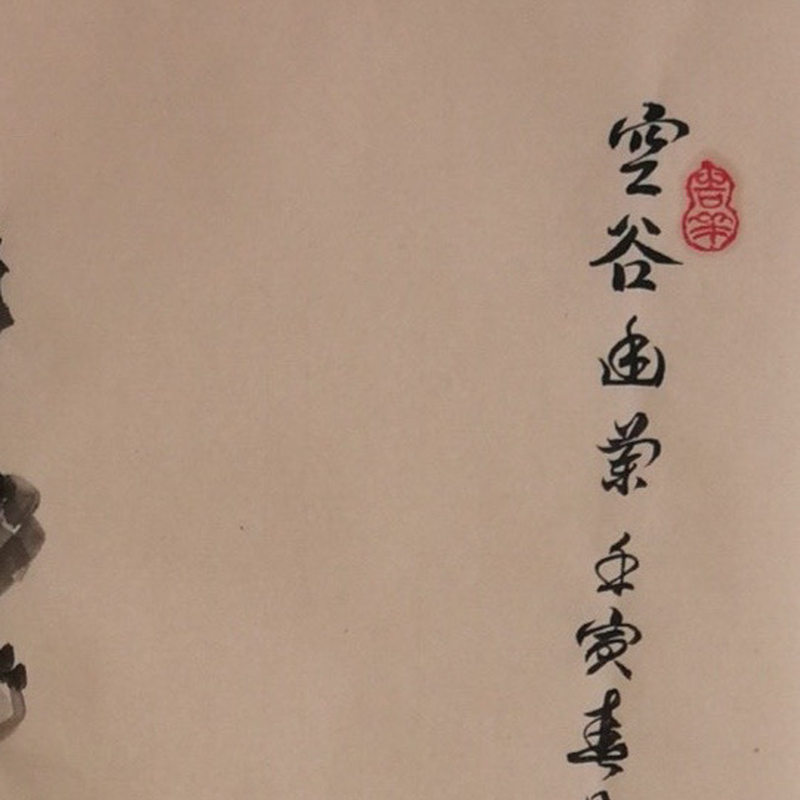 空谷幽蘭壬寅春